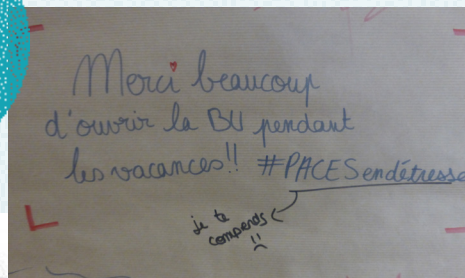 Merci beaucoup
d'ouvrir la BU pendant
les vacances!! #PACESendétresse
je te
comprends
!!